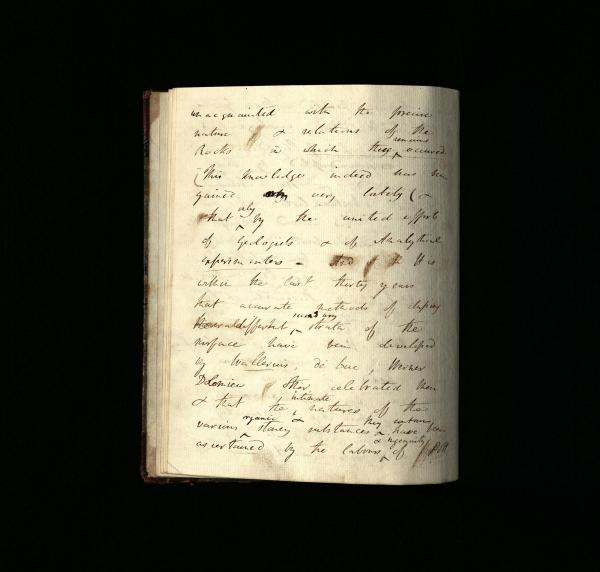 unacquainted with the precise
nature & relations of the
Rocks in which these remains occurred
(This knowledge indeed has been
gained very lately (&
that only by the united efforts
of Geologists & of Analytical
experimenters – And it is
within the last thirty years
that accurate methods of
different secondary strata of the
surface have been developed
by Wallerius, de Luc, Werner
Dolomieu & other celebrated Men
& that the intimate natures of the
various organic & stoney substances they contain have been
ascertained by the labours & ingenuity of